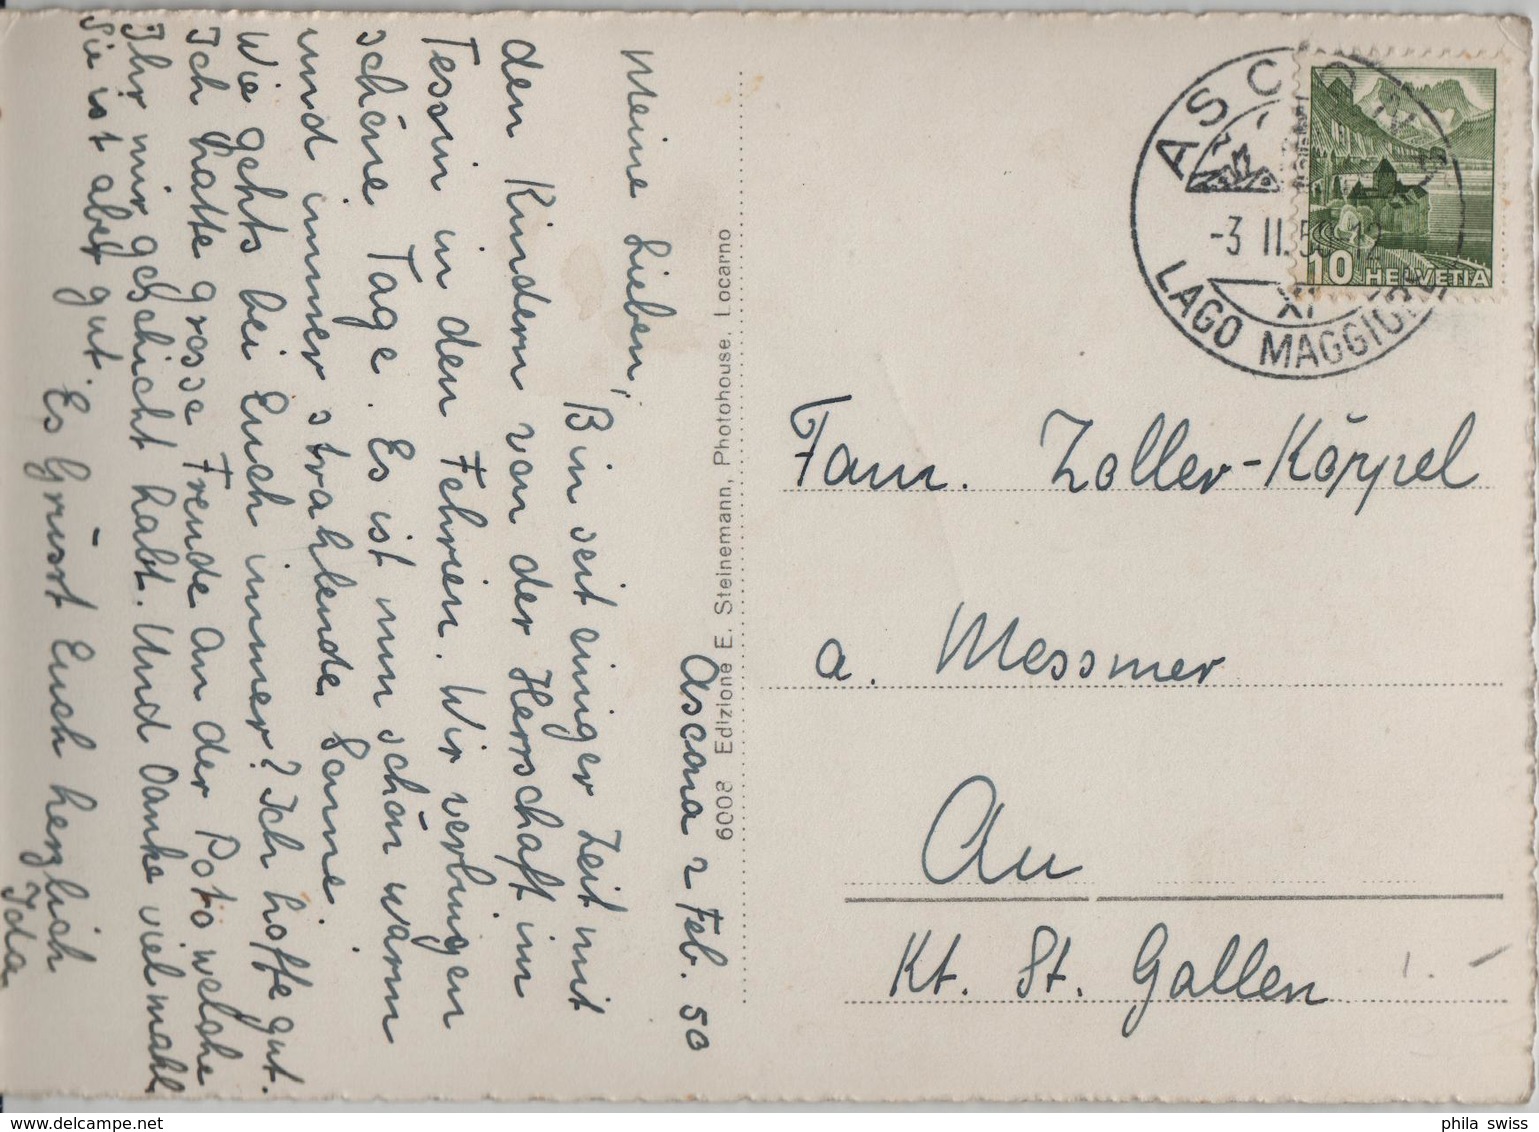 Ascona 2 Feb. 50
Meine Lieben,
Bin seit einiger Zeit mit
den Kindern von der Herrschaft im
Tessin in den Fehrien. Wir verbringen
schöne Tage. Es ist nun schön warm
und immer strahlende Sonne.
Wie gehts bei Euch immer? Ich hoffe gut.
Ich hatte grosse Freude an der Poto welche
Ihr mir geschickt habt. Und Danke viel mahl
Sie ist aber gut.
Es Grüsst Euch herzlich
Ida
6008 Edizione E. Steinemann, Photohouse, Locarno
ASCONA
-3 II. 50 12
XI
LAGO MAGGIORE
10 HELVETIA
Fam. Zoller-Köppel
a. Messmer
Au
Kt. St. Gallen
phila swiss